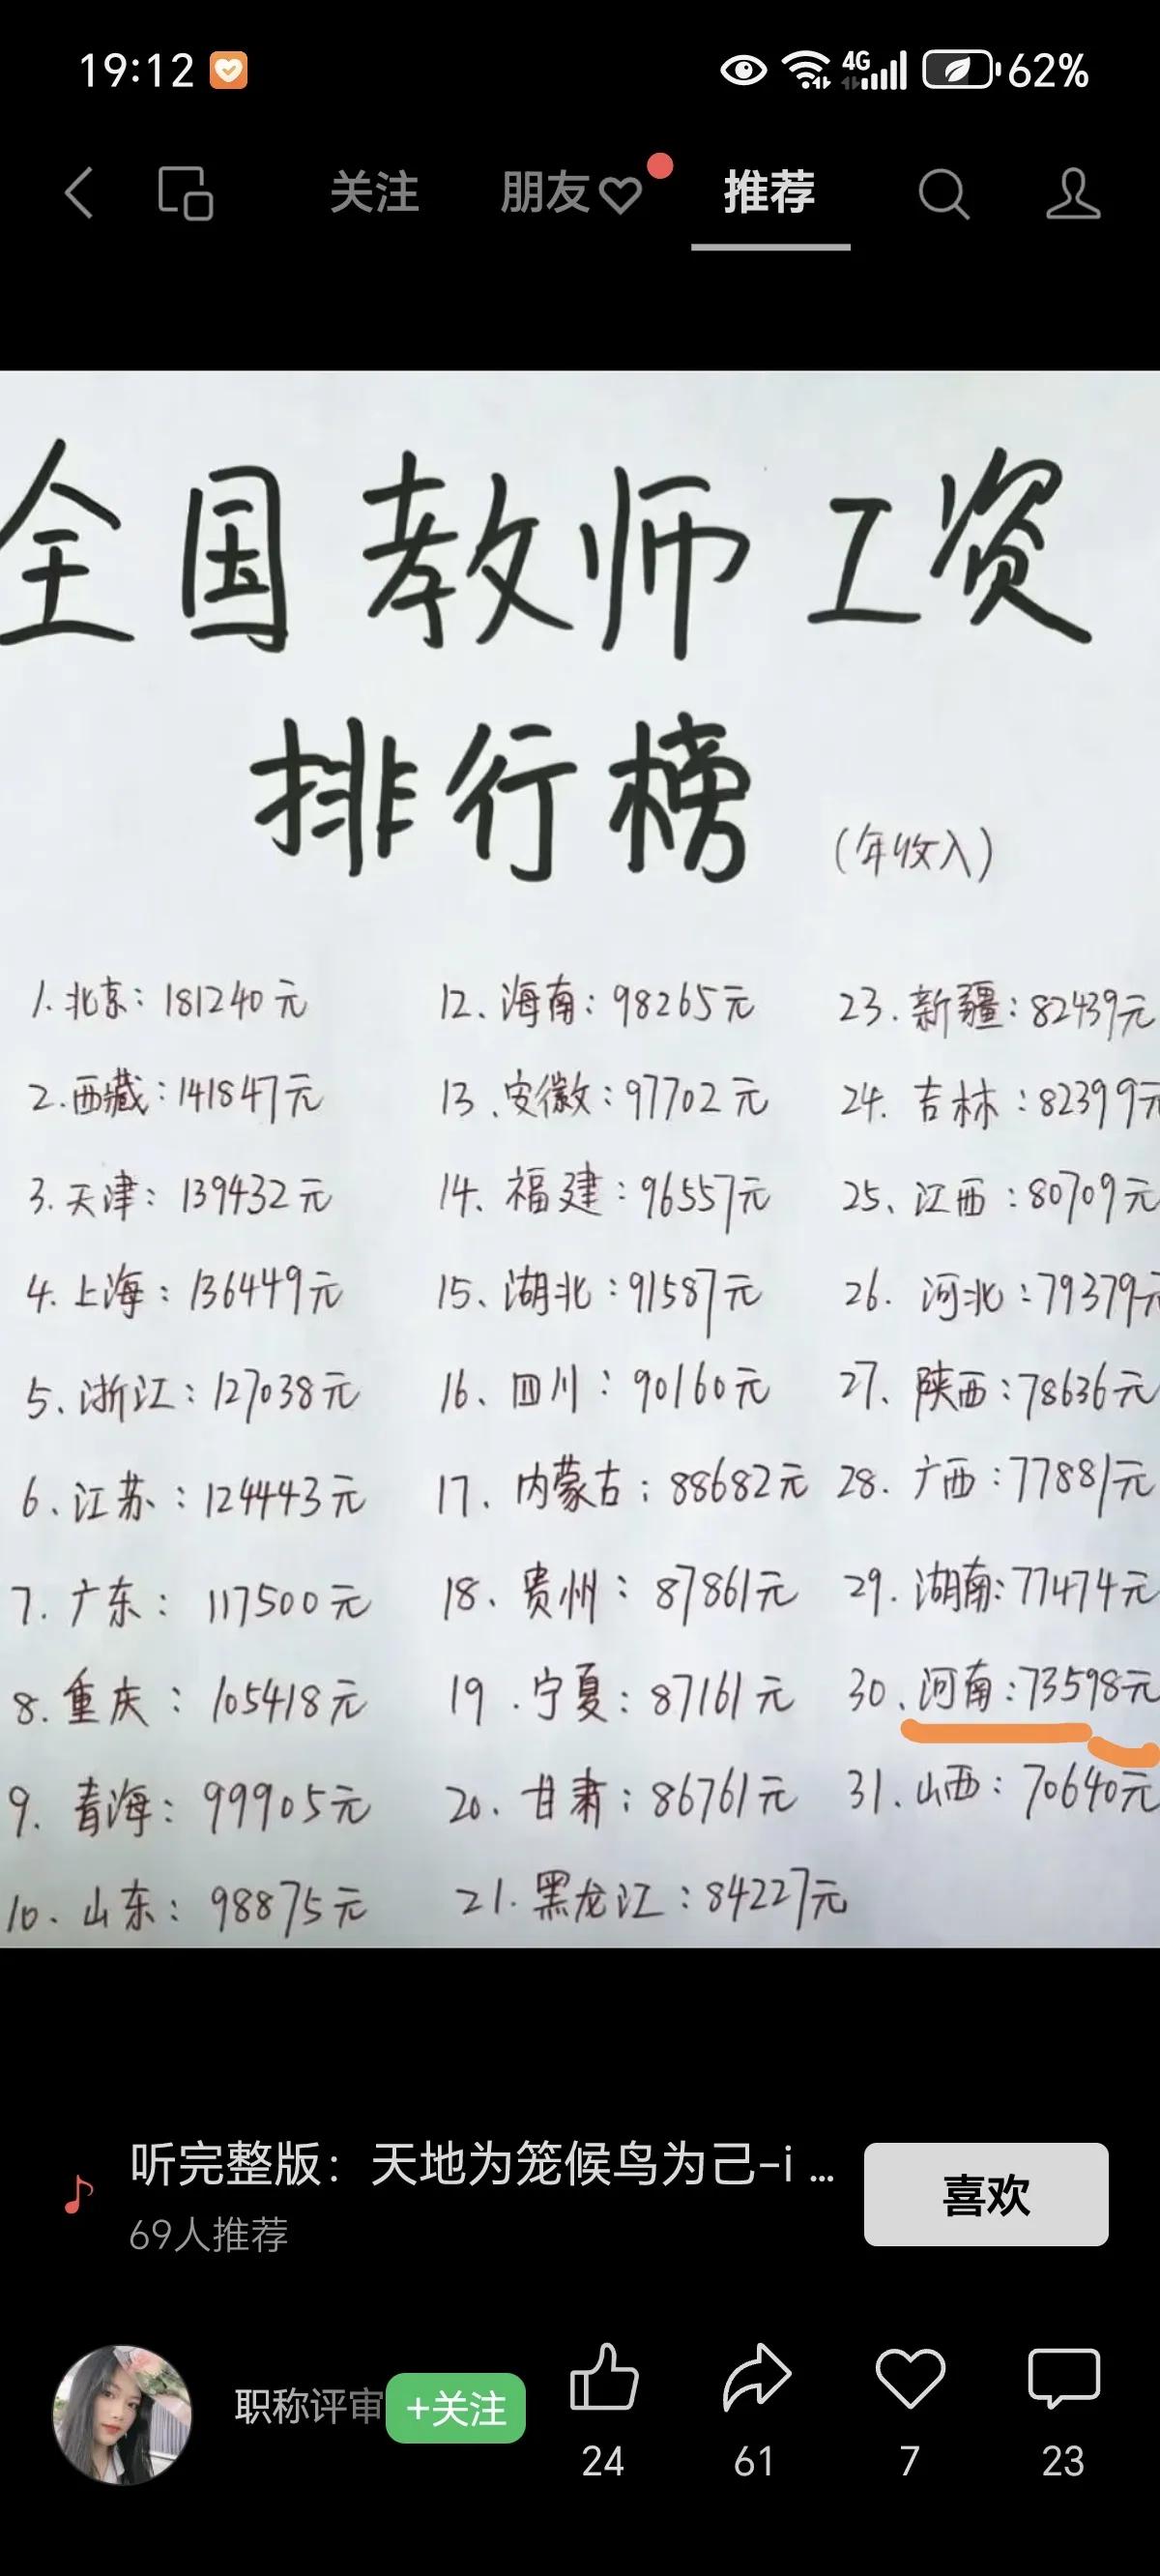 19:12
4G
62%
关注
朋友
推荐
全国教师工资
排行榜
(年收入)
1.北京：181240元
2.西藏：141847元
3.天津：139432元
4.上海：136449元
5.浙江：127038元
6.江苏：124443元
7.广东：117500元
8.重庆：105418元
9.青海：99905元
10.山东：98875元
12.海南：98265元
13.安徽：97702元
14.福建：96557元
15.湖北：91587元
16.四川：90160元
17.内蒙古：88682元
18.贵州：87861元
19.宁夏：87161元
20.甘肃：86761元
21.黑龙江：84227元
23.新疆：82439元
24.吉林：82399元
25.江西：80709元
26.河北：79379元
27.陕西：78636元
28.广西：77881元
29.湖南：77474元
30.河南：73598元
31.山西：70640元
听完整版：天地为笼候鸟为己-i ...
69人推荐
喜欢
职称评审
+关注
24
61
7
23